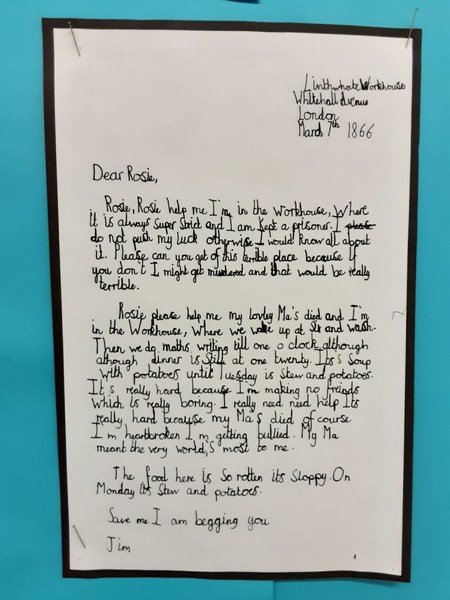 Linthwaite Workhouse
Whitehall Avenue
London
March 7th 1866
Dear Rosie,
Rosie, Rosie help me I'm in the Workhouse, Where
it is always Super Strict and I am Kept a prisoner. I please
do not push my luck otherwise I would know all about
it. Please can you get of this terrible place because if
you don't I might get murdered and that would be really
terrible.
Rosie please help me my lovley Ma's died and I'm
in the Workhouse, where we wake up at Six and wash.
Then we do maths, writing till one o clock although
although dinner is Still at one twenty. It's Soup
with potatoes until Tuesday is Stew and potatoes.
It's really hard because I'm making no freinds
which is really boring. I really need need help Its
really hard because my Ma's died of course
I'm heartbroken I'm getting bullied. My Ma
meant the very world's most to me.
The food here is So rotten its Sloppy. On
Monday its Stew and potatoes.
Save me I am begging you
Jim